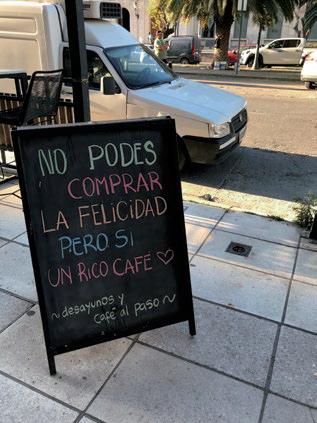 NO PODES
COMPRAR
LA FELICIDAD
PERO SI
UN RICO CAFÉ ♡
~desayunos y
Café al paso~